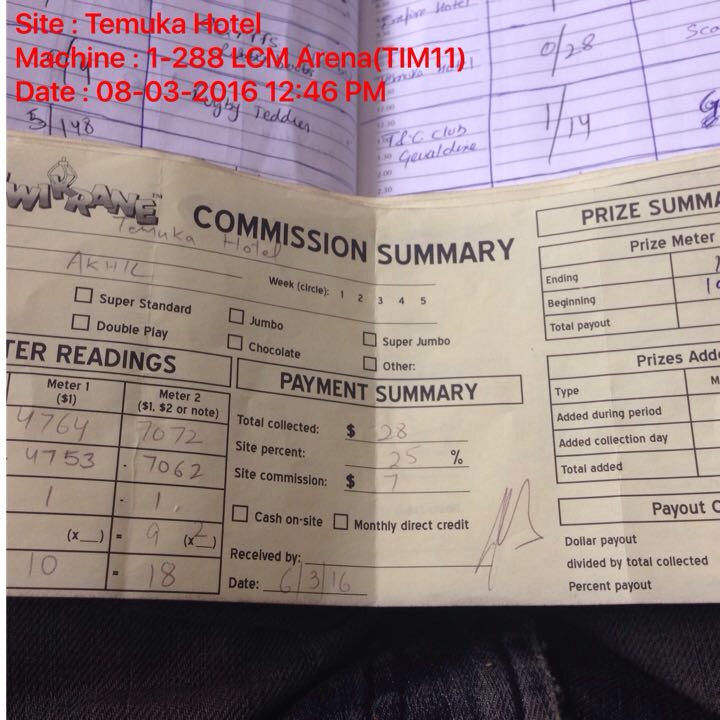 Site : Temuka Hotel
Machine : 1-288 LCM Arena(TIM11)
Date : 08-03-2016 12:46 PM
Empire Hotel
0/28
5/148
Rugby Teddies
12.00
1.30
T&C Club
Geraldine
1/14
2.00
2.30
WIKRANE™
Temuka Hotel
COMMISSION SUMMARY
AKHIL
Week (circle): 1 2 3 4 5
Super Standard
Jumbo
Super Jumbo
Double Play
Chocolate
Other:
TER READINGS
Meter 1
($1)
Meter 2
($1, $2 or note)
4764 7072
- 4753 - 7062
1 - 1
(x__) = 9 (x2)
10 = 18
PAYMENT SUMMARY
Total collected: $ 28
Site percent: 25 %
Site commission: $ 7
Cash on-site
Monthly direct credit
Received by:
Date: 6/3/16
PRIZE SUMMA
Prize Meter
Ending
Beginning
Total payout
Prizes Adde
Type M
Added during period
Added collection day
Total added
Payout C
Dollar payout
divided by total collected
Percent payout